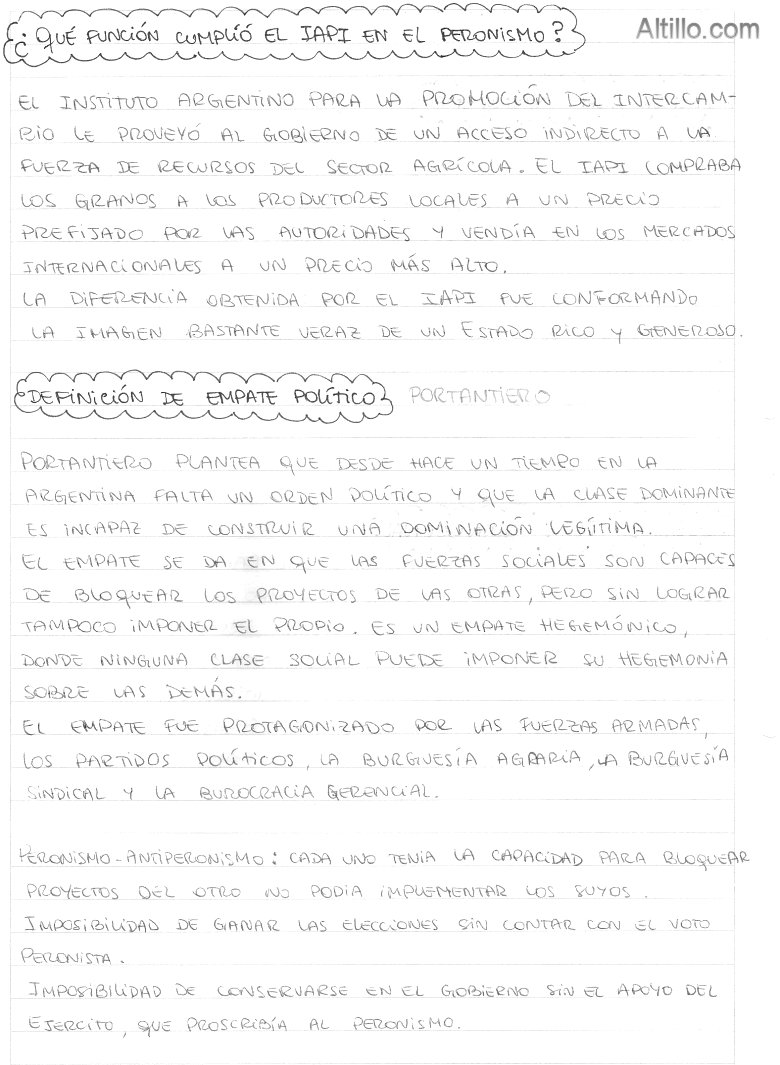 Altillo.com
¿QUÉ FUNCIÓN CUMPLIÓ EL IAPI EN EL PERONISMO?
EL INSTITUTO ARGENTINO PARA LA PROMOCIÓN DEL INTERCAM-
BIO LE PROVEYÓ AL GOBIERNO DE UN ACCESO INDIRECTO A LA
FUERZA DE RECURSOS DEL SECTOR AGRÍCOLA. EL IAPI COMPRABA
LOS GRANOS A LOS PRODUCTORES LOCALES A UN PRECIO
PREFIJADO POR LAS AUTORIDADES Y VENDÍA EN LOS MERCADOS
INTERNACIONALES A UN PRECIO MÁS ALTO.
LA DIFERENCIA OBTENIDA POR EL IAPI FUE CONFORMANDO
LA IMAGEN BASTANTE VERAZ DE UN ESTADO RICO Y GENEROSO.
DEFINICIÓN DE EMPATE POLÍTICO PORTANTIERO
PORTANTIERO PLANTEA QUE DESDE HACE UN TIEMPO EN LA
ARGENTINA FALTA UN ORDEN POLÍTICO Y QUE LA CLASE DOMINANTE
ES INCAPAZ DE CONSTRUIR UNA DOMINACIÓN LEGÍTIMA.
EL EMPATE SE DA EN QUE LAS FUERZAS SOCIALES SON CAPACES
DE BLOQUEAR LOS PROYECTOS DE LAS OTRAS, PERO SIN LOGRAR
TAMPOCO IMPONER EL PROPIO. ES UN EMPATE HEGEMÓNICO,
DONDE NINGUNA CLASE SOCIAL PUEDE IMPONER SU HEGEMONIA
SOBRE LAS DEMÁS.
EL EMPATE FUE PROTAGONIZADO POR LAS FUERZAS ARMADAS,
LOS PARTIDOS POLÍTICOS, LA BURGUESÍA AGRARIA, LA BURGUESÍA
SINDICAL Y LA BUROCRACIA GERENCIAL.
PERONISMO-ANTIPERONISMO: CADA UNO TENIA LA CAPACIDAD PARA BLOQUEAR
PROYECTOS DEL OTRO NO PODIA IMPLEMENTAR LOS SUYOS.
IMPOSIBILIDAD DE GANAR LAS ELECCIONES SIN CONTAR CON EL VOTO
PERONISTA.
IMPOSIBILIDAD DE CONSERVARSE EN EL GOBIERNO SIN EL APOYO DEL
EJERCITO, QUE PROSCRIBÍA AL PERONISMO.